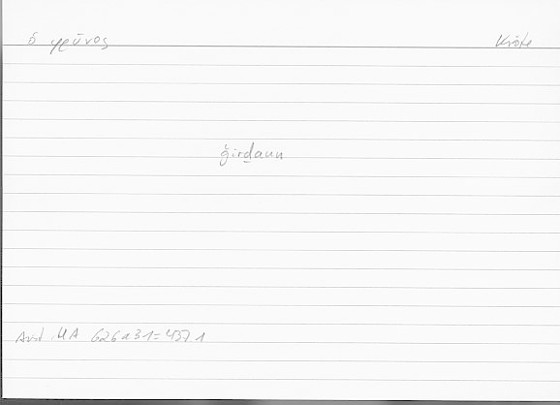 ὁ φρῦνος Kröte
ǧirḏaun
Arist. HA 626a31=457 1